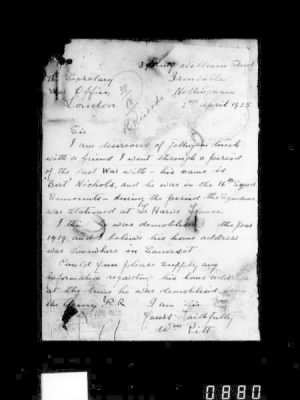 William Street
The Secretary Ironville
War Office, Nottingham
London 2nd April 1935
Records
Sir
I am desireous of getting in touch
with a friend I went through a period
of the last War with - his name is
Bert Nichols, and he was in the 16th Squd
Remounts - during the period the Squadron
was stationed at Le Havre France
I he was demoblised the year
1919, and I believe his home address
was somewhere in Somerset.
Could you please supply any
information regarding his home address
at the time he was demoblised from
the Army, P.R I am Sir
Yours Faithfully,
Wm Pitt
0880